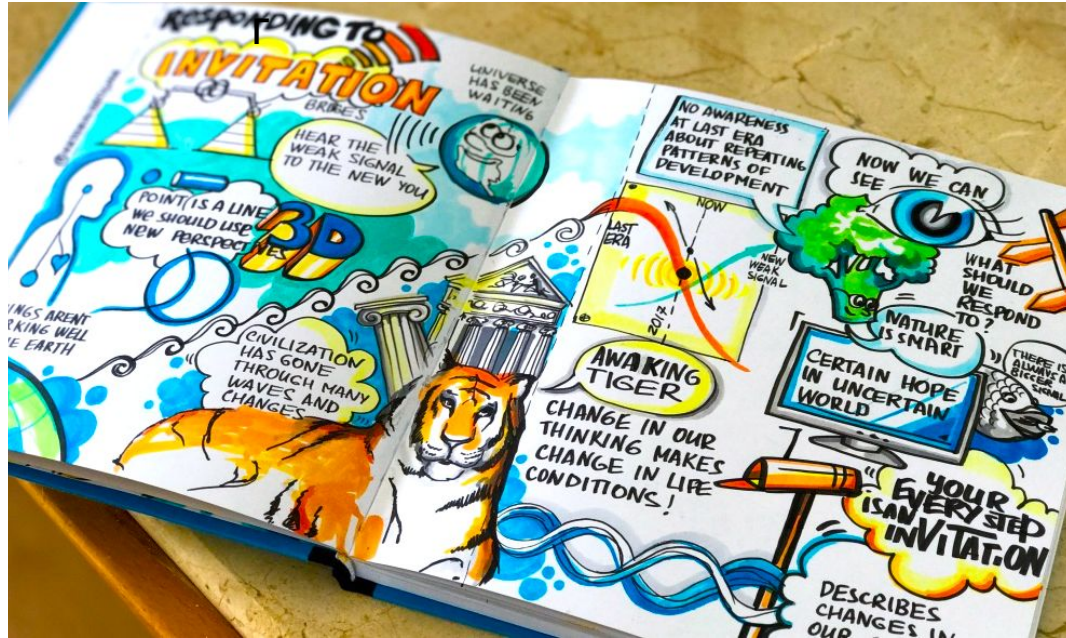 RESPONDING TO
INVITATION
BRIDGES
UNIVERSE
HAS BEEN
WAITING
HEAR THE
WEAK SIGNAL
TO THE NEW YOU
POINT IS A LINE
WE SHOULD USE
NEW PERSPECTIVES
3D
ARENT
WELL
EARTH
CIVILIZATION
HAS GONE
THROUGH MANY
WAVES AND
CHANGES
NO AWARENESS
AT LAST ERA
ABOUT REPEATING
PATTERNS OF
DEVELOPMENT
NOW WE CAN
SEE
LAST
ERA
NOW
NEW
WEAK
SIGNAL
2017
WHAT
SHOULD
WE
RESPOND
TO?
NATURE
IS SMART
CERTAIN HOPE
IN UNCERTAIN
WORLD
THERE IS
ALWAYS A
BIGGER
SIGNAL
AWAKING
TIGER
CHANGE IN OUR
THINKING MAKES
CHANGE IN LIFE
CONDITIONS!
YOUR
EVERY STEP
IS AN
INVITATION
DESCRIBES
CHANGES IN
OUR